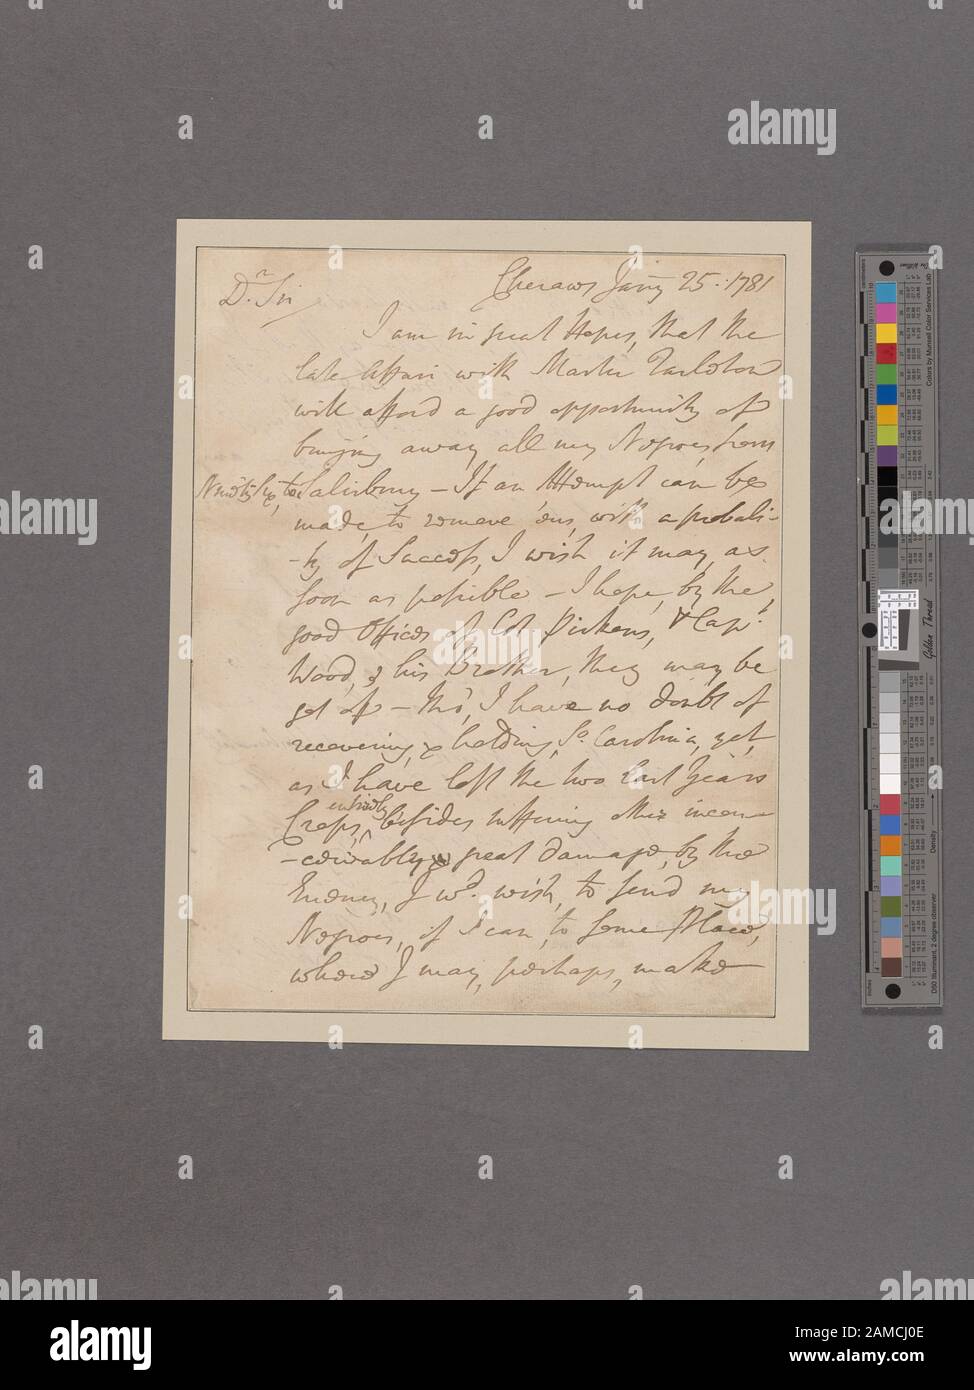 Cheraws Jany 25.. 1781
Dr. Sir
I am in great Hopes, that the
late Affair with Master Tarleton
will afford a good opportunity of
bringing away all my Negroes, from
Ninety Six, to Salisbury - If an Attempt can be
made, to remove 'em, with a probabi-
-ty of Success, I wish it may, as
soon as possible - I hope, by the
good Offices of Col. Pickens, & Capt.
Wood, & his Brother, they may be
got of - Tho', I have no doubt of
recovering, & holding, So. Carolina, yet,
as I have lost the two last Years
Crops, entirely, besides suffering other incon-
great damage, by the
Enemy, I wd. wish, to send my
Negroes, if I can, to some Place,
where I may, perhaps, make
alamy
Image ID: 2AMCJ0E
www.alamy.com